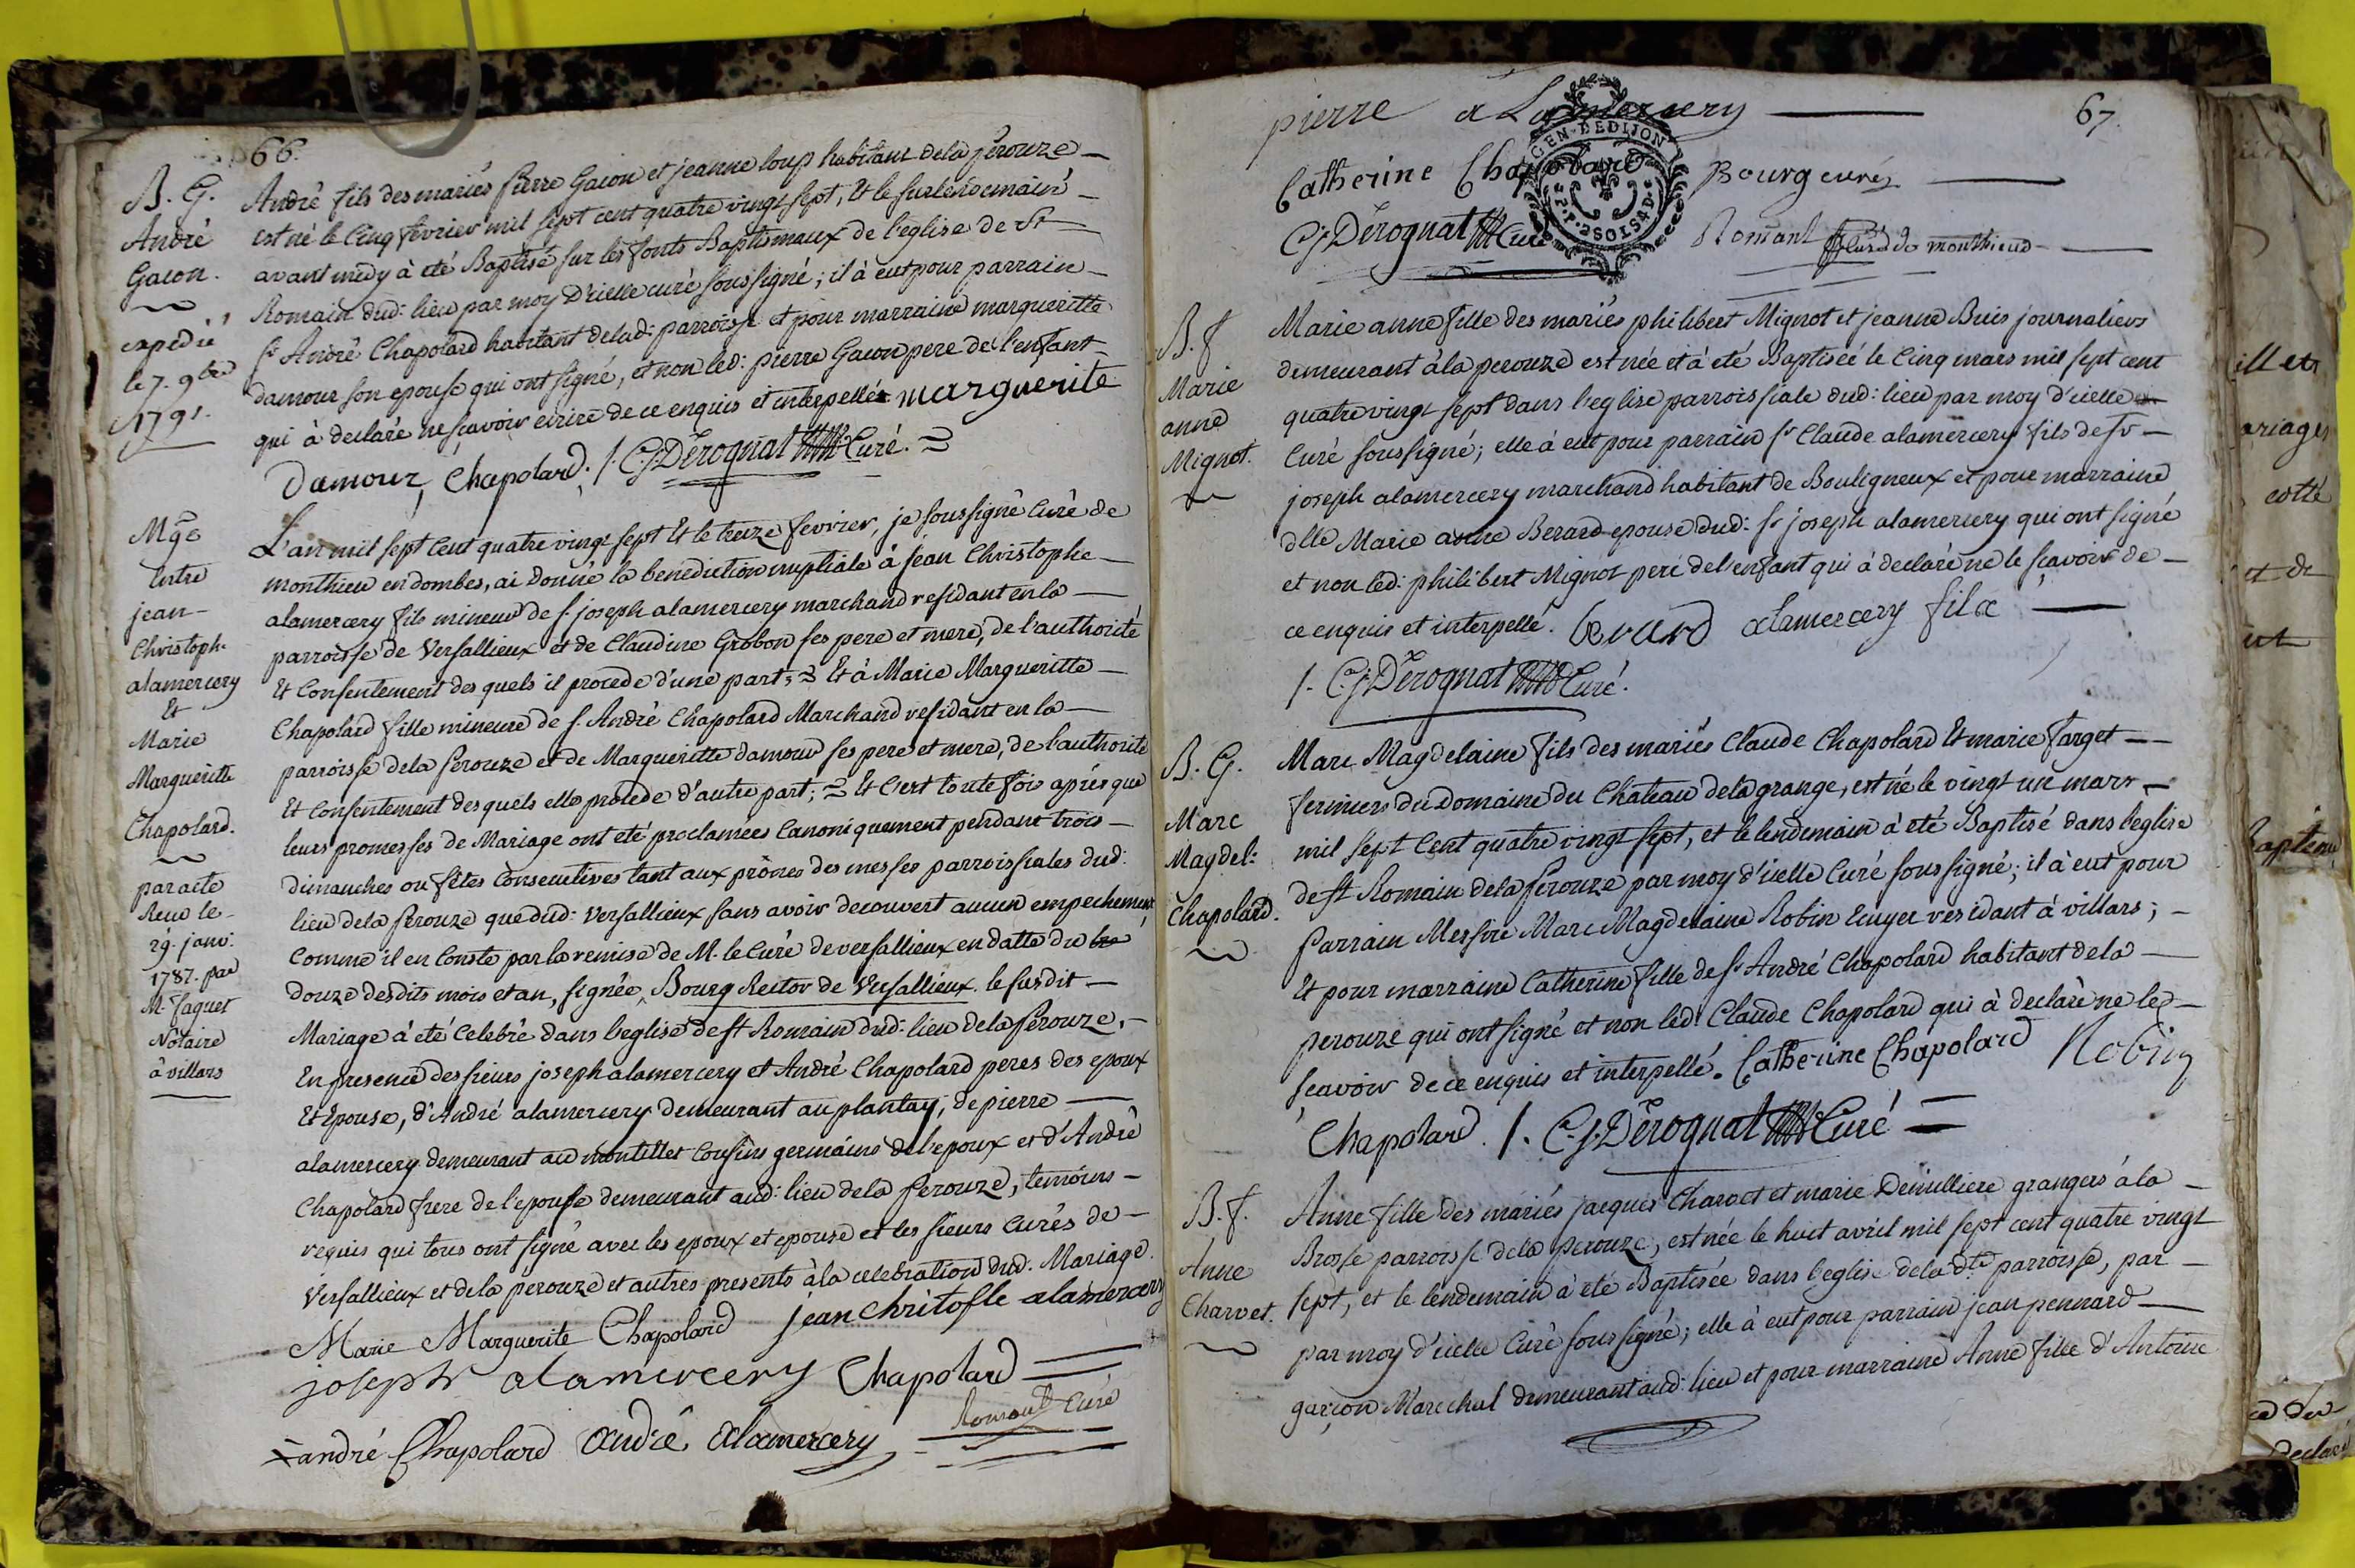 66.
B. G.
André
Gacon.
expedié
le 7. 9bre
1791.
André fils des mariés pierre Gacon et jeanne loup habitant dela pérouze
est né le Cinq fevrier mil sept cent quatre vingt sept, Et le surlendemain
avant midy à eté Baptisé sur les fonts Baptismaux de l'eglise de St
Romain dud: lieu par moy D'icelle curé soussigné; il à eut pour parrain
sr André Chapolard habitant delad: parroisse et pour marraine margueritte
damour son epouse qui ont signé, et non led: pierre Gacon pere de l'enfant
qui à declaré ne sçavoir ecrire de ce enquis et interpellé. marguerite
Damour, Chapolard. /. C.J. Derognat Curé.
Mge
Entre
jean-
Christoph.
alamercery
Et
Marie
Margueritte
Chapolard.
par acte
Reçu le
29. janv:
1787. par
M. Faguet
Notaire
à villars
L'an mil sept Cent quatre vingt sept Et le treize fevrier, je soussigné Curé de
monthieu en dombes, ai donné la benediction nuptiale à jean Christophe
alamercery fils mineur de s. joseph alamercery marchand residant en la
parroisse de Versallieux et de Claudine Grobon ses pere et mere, de l'authorité
Et Consentement des quels il procede d'une part; Et à Marie Margueritte
Chapolard fille mineure de s. André Chapolard Marchand residant en la
parroisse dela Perouze et de Margueritte damour ses pere et mere, de l'authorité
Et Consentement des quels elle procede d'autre part; Et C'est toute fois après que
leurs promesses de Mariage ont eté proclamées Canoniquement pendant trois
dimanches ou fêtes Consecutives tant aux prônes des messes parroissiales dud:
lieu dela Perouze que dud: Versallieux sans avoir decouvert aucun empechement,
Comme il en Conste par la remise de M. le Curé de versallieux en datte du
douze desdits mois et an, signée, Bourg Rector de Versallieux. le susdit
Mariage à eté Celebré dans l'eglise de st Romain dud: lieu dela Perouze,
En presence des sieurs joseph alamercery et André Chapolard peres des epoux
Et Epouse, d'André alamercery demeurant au plantay, de pierre
alamercery demeurant au montellet Cousins germains de l'epoux et d'André
Chapolard frere de l'epouse demeurant aud: lieu dela Perouze, temoins
requis qui tous ont signé avec les epoux et epouse et les sieurs Curés de
Versallieux et dela perouze et autres presents à la celebration dud. Mariage.
Marie Marguerite Chapolard jean chritofle alamercery
joseph alamercery Chapolard
andré Chapolard André Alamercery Romant Curé
67.
pierre alamercery
GEN. DE DIJON
Catherine Chapolard Bourg curé
C.J. Derognat Curé Romant Curé de monthieud
B. f
Marie
anne
Mignot.
Marie anne fille des mariés philibert Mignot et jeanne Buis journaliers
demeurant à la perouze est née et à eté Baptiseé le Cinq mars mil sept cent
quatre vingt sept dans l'eglise parroissiale dud: lieu par moy d'icelle
Curé soussigné; elle à eut pour parrain sr Claude alamercery fils de sr
joseph alamercery marchand habitant de Bouligneux et pour marraine
dlle Marie anne Berard epouse dud: sr joseph alamercery qui ont signé
et non led: philibert Mignot pere de l'enfant qui à declaré ne le sçavoir de
ce enquis et interpellé. berard alamercery fils
/. C.J. Derognat Curé.
B. G.
Marc
Magdel:
Chapolard.
Marc Magdelaine fils des mariés Claude Chapolard Et marie farget
fermiers du Domaine du Chateau dela grange, est né le vingt un mars
mil sept Cent quatre vingt sept, et le lendemain à eté Baptisé dans l'eglise
de st Romain dela Perouze par moy d'icelle Curé soussigné; il à eut pour
Parrain Messire Marc Magdelaine Robin Ecuyer residant à villars;
Et pour marraine Catherine fille de sr André Chapolard habitant dela
perouze qui ont signé et non led: Claude Chapolard qui à declaré ne le
sçavoir de ce enquis et interpellé. Catherine Chapolard Robin
Chapolard. /. C.J. Derognat Curé
B. f.
Anne
Charvet.
Anne fille des mariés jacques Charvet et marie Denulliere grangers à la
Brosse parroisse dela perouze, est née le huit avril mil sept cent quatre vingt
sept, et le lendemain à eté Baptisée dans l'eglise dela dte parroisse, par
par moy d'icelle Curé soussigné; elle à eut pour parrain jean pennard
garçon Marechal demeurant aud: lieu et pour marraine Anne fille d'Antoine